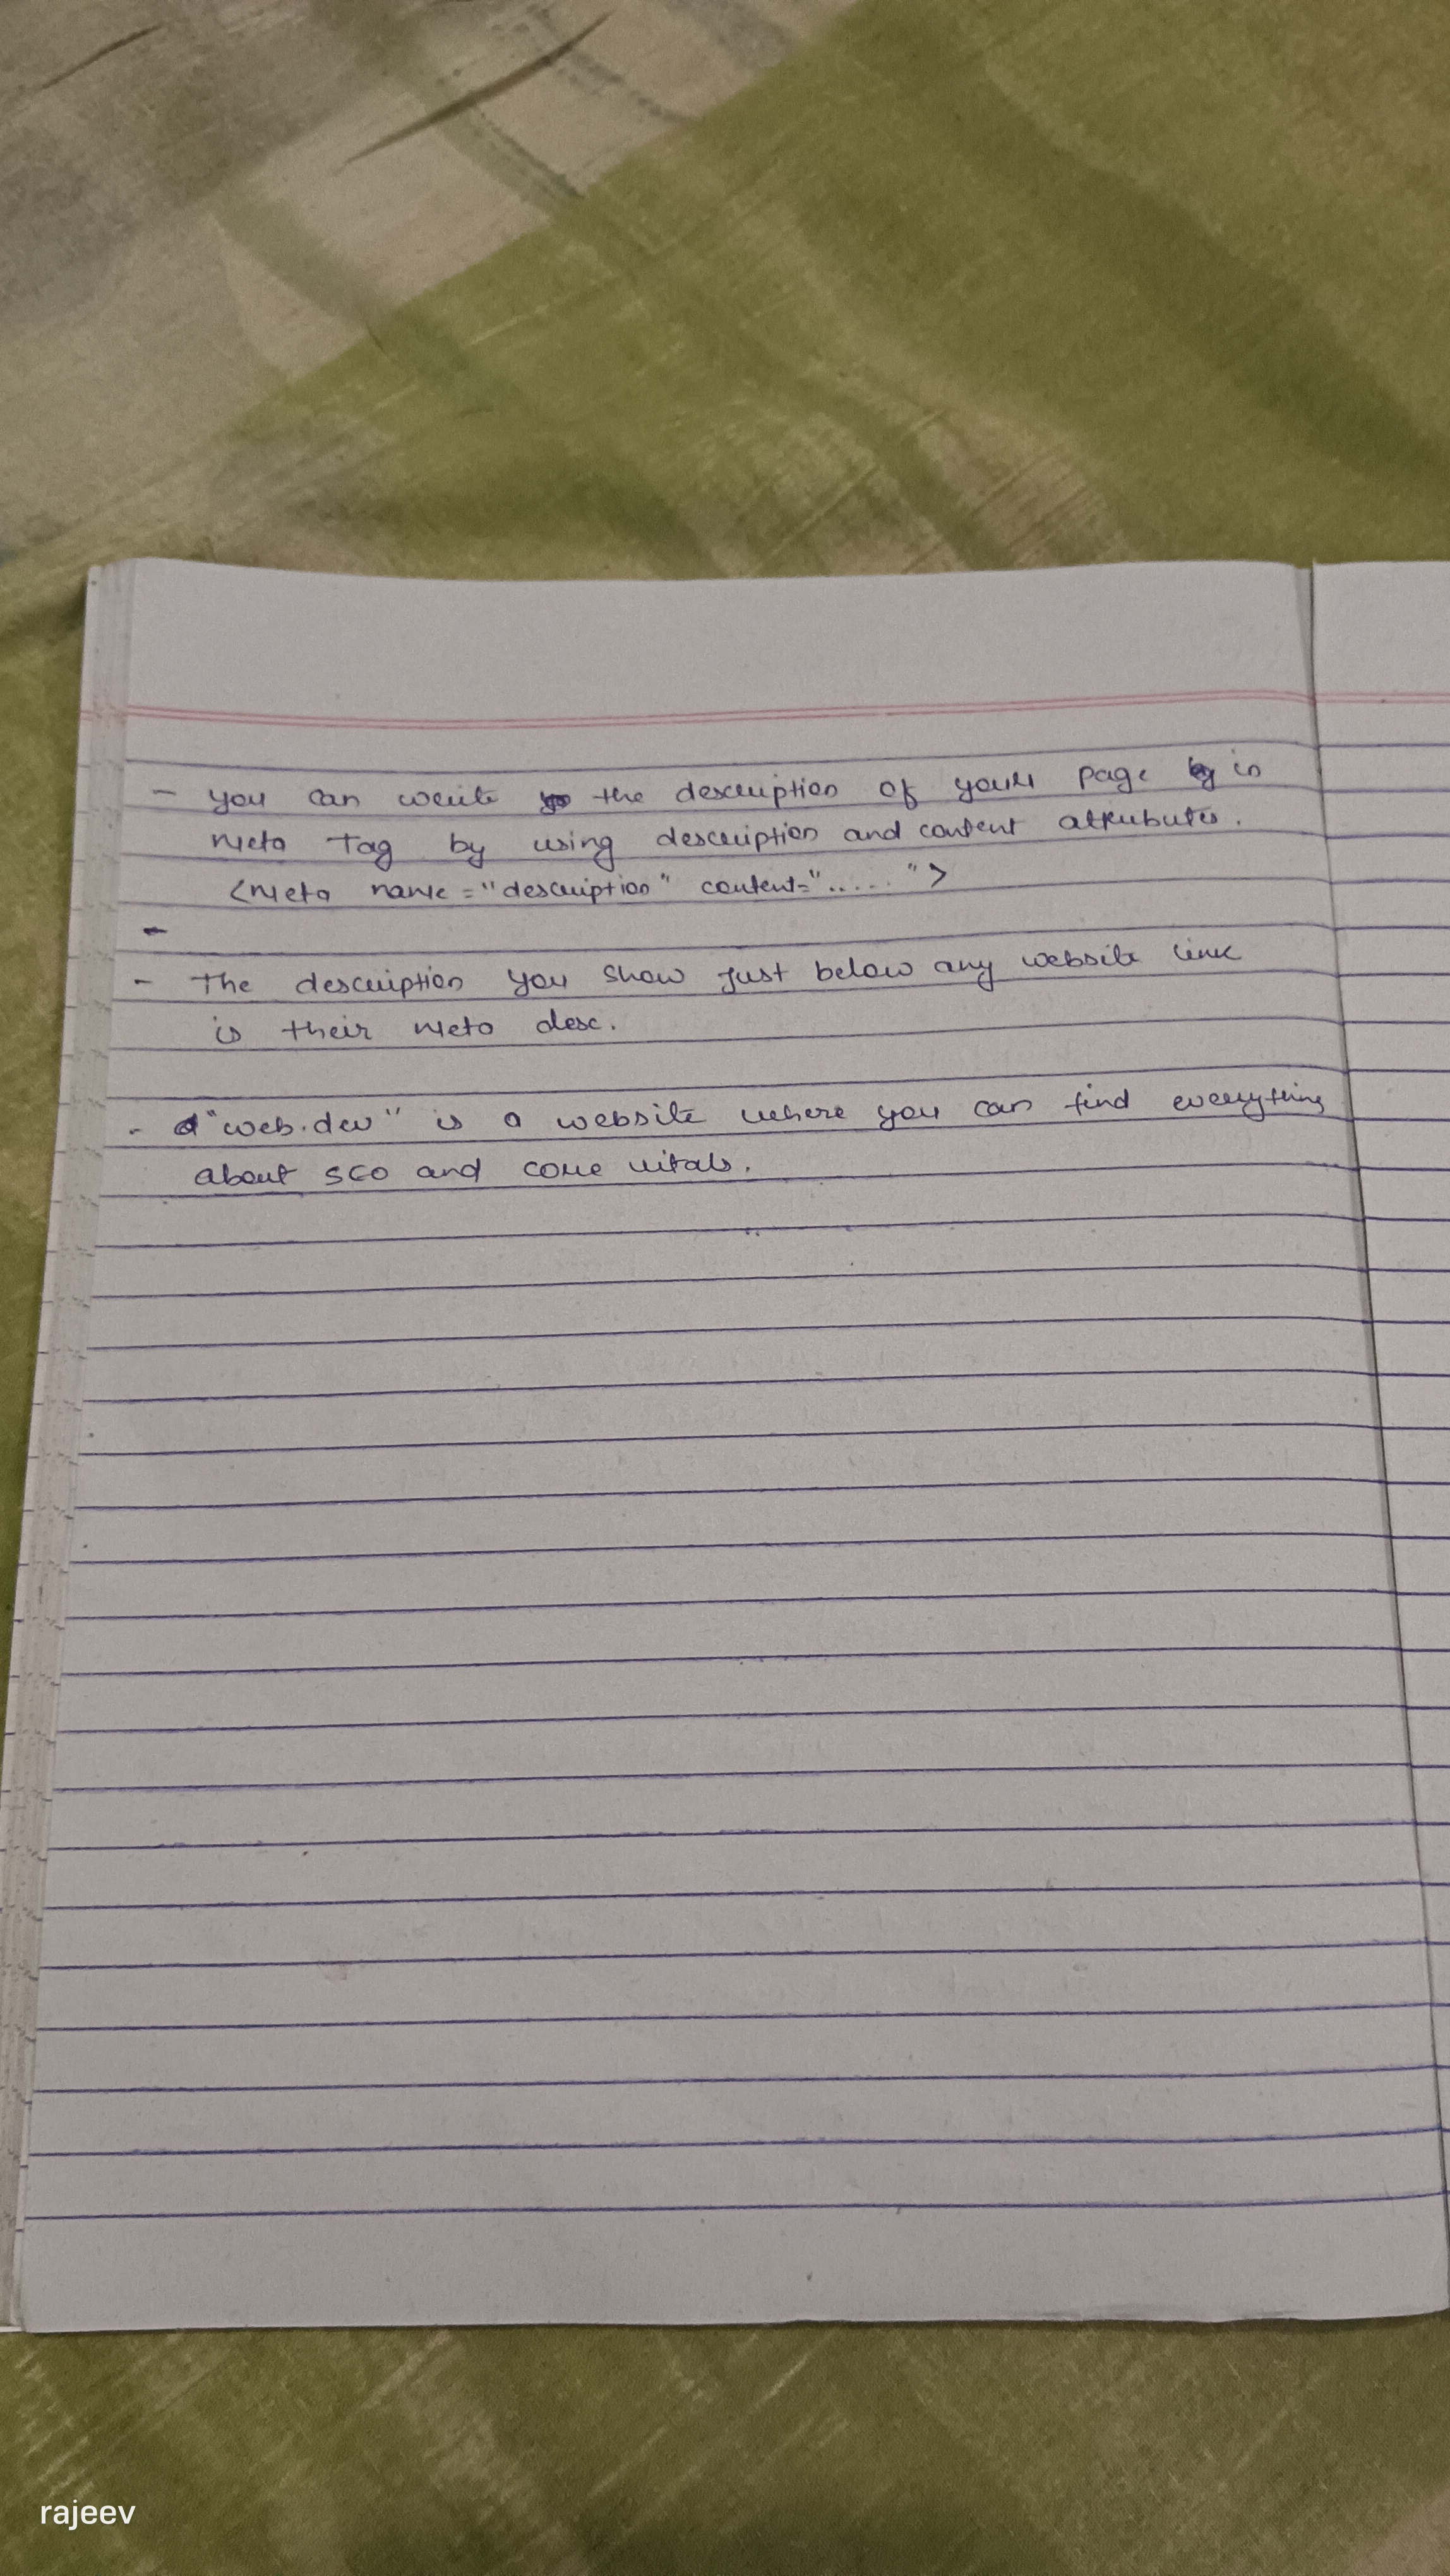 - you can write the description of your page in
meta Tag by using description and content attributes.
<meta name="description" content=".....">
-
- The description you show just below any website link
is their meta desc.
- "web.dev" is a website where you can find everything
about SEO and core vitals.
rajeev